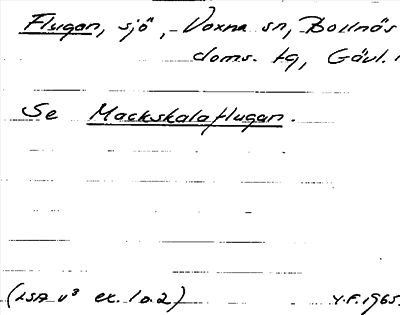 Flugan, sjö, Voxna sn, Bollnäs
doms. tg, Gävl.
Se Mackskalaflugan.
(LSA v³ ex. 1 o. 2) Y.F. 1965.